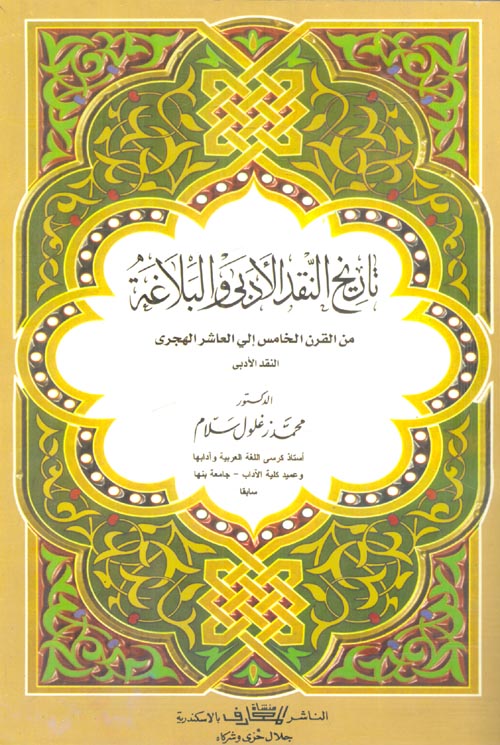 تاريخ النقد الأدبى والبلاغة
من القرن الخامس إلي العاشر الهجرى
النقد الأدبى
الدكتور
محمد زغلول سلام
أستاذ كرسى اللغة العربية وأدابها
وعميد كلية الآداب - جامعة بنها
سابقا
الناشر منشأة المعارف بالاسكندرية
جلال حزى وشركاه